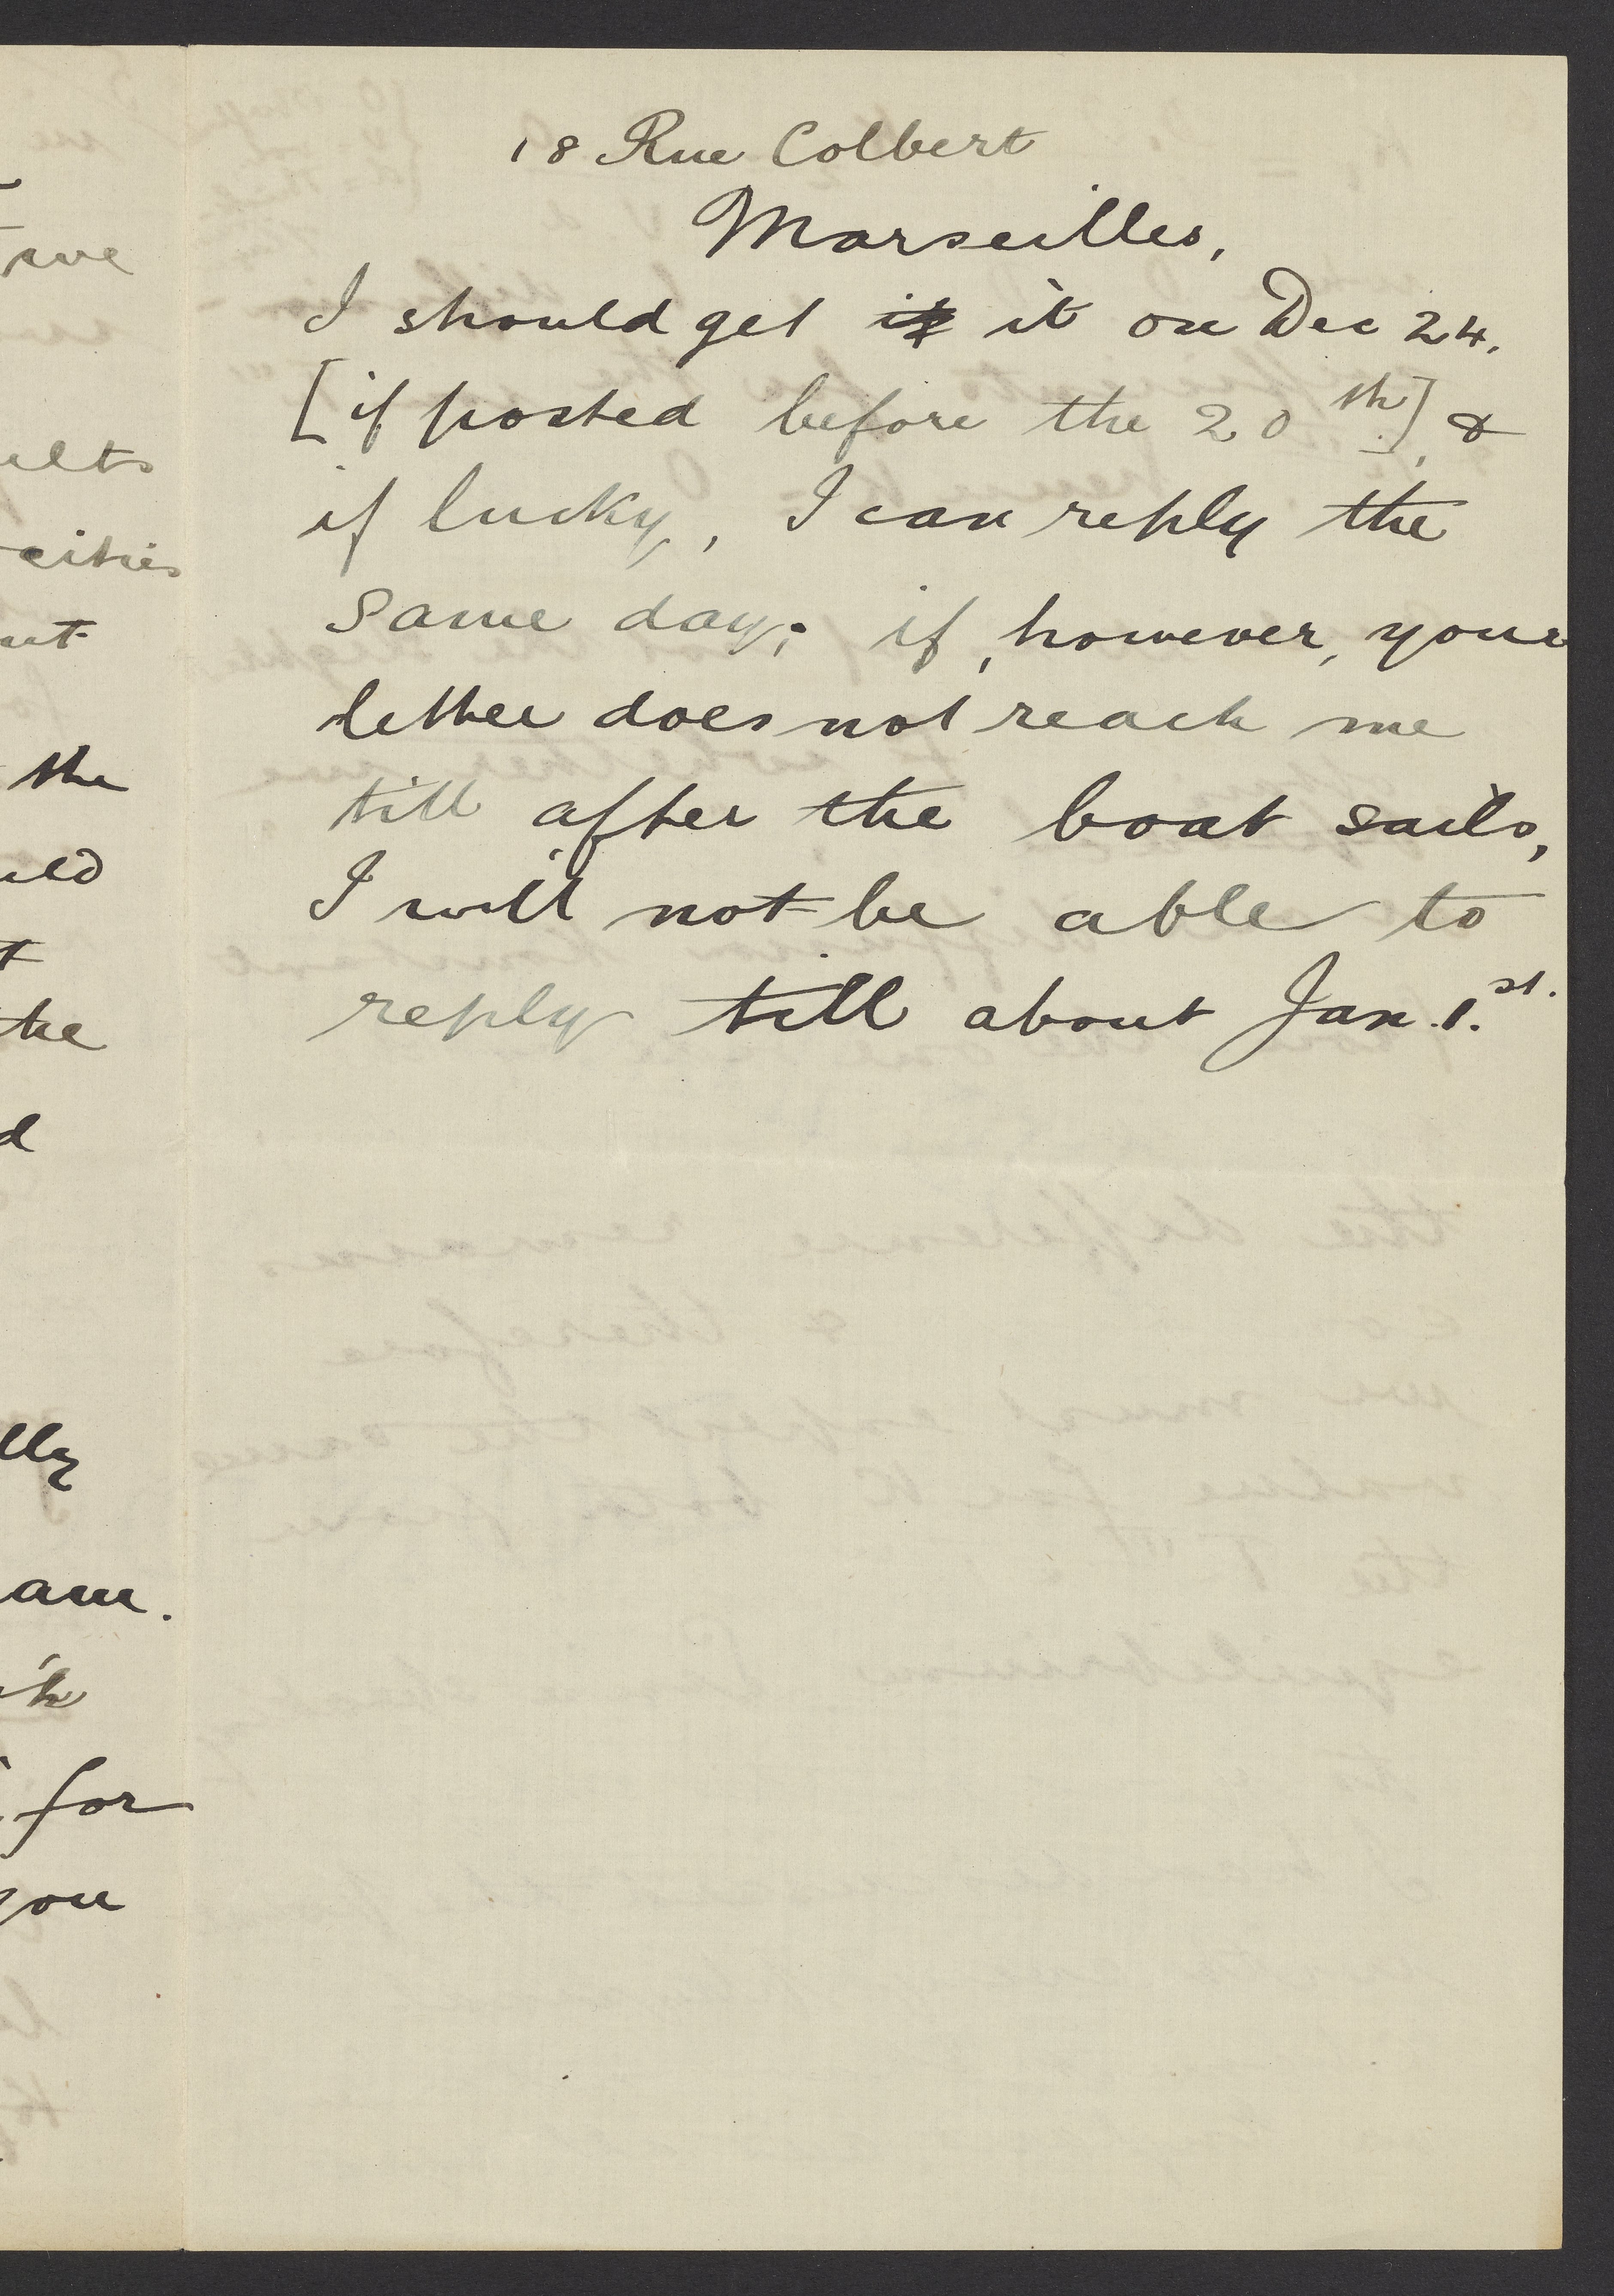 18 Rue Colbert
Marseilles,
I should get it it on Dec 24.
[if posted before the 20th], &
if lucky, I can reply the
same day; if, however, your
letter does not reach me
till after the boat sails,
I will not be able to
reply till about Jan. 1.st.
ave
cities
the
the
d
lly
am.
for
you